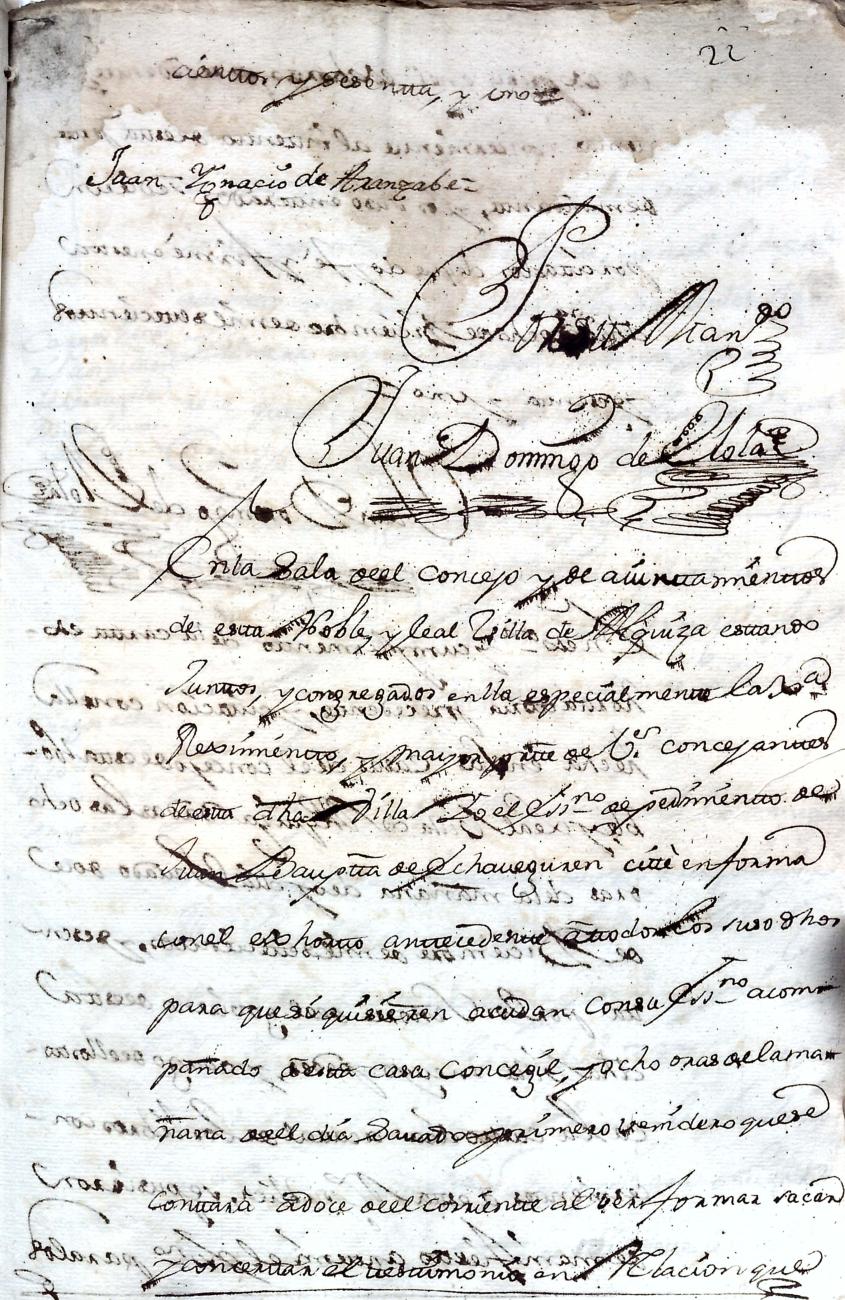 22
cientos y sesentta, y uno =
Juan Ygnacio de Aranzabe =
Juan Domingo de Elola
En la Sala de el Concejo y de aiuntamienttos
de esta Noble, y leal Villa de Alquiza estando
Juntos, y congregados en lla especialmente la Jus.a
Reximientto, y mayor partte de V.s concejanttes
de esta dha Villa Yo el Ss.no de pedimiento de
Juan Bauptta de Echaveguren citté en forma
con el exhortto anttecedente a ttodos los suso dhos
para que si quisieren acudan con su Ss.no acom-
pañado a esta casa Concegil, y ocho oras de la ma-
ñana de el dia Savado primero venidero que se
conttará a doce de el corriente al ver formar sacar
y concertar el testimonio en Relacion que